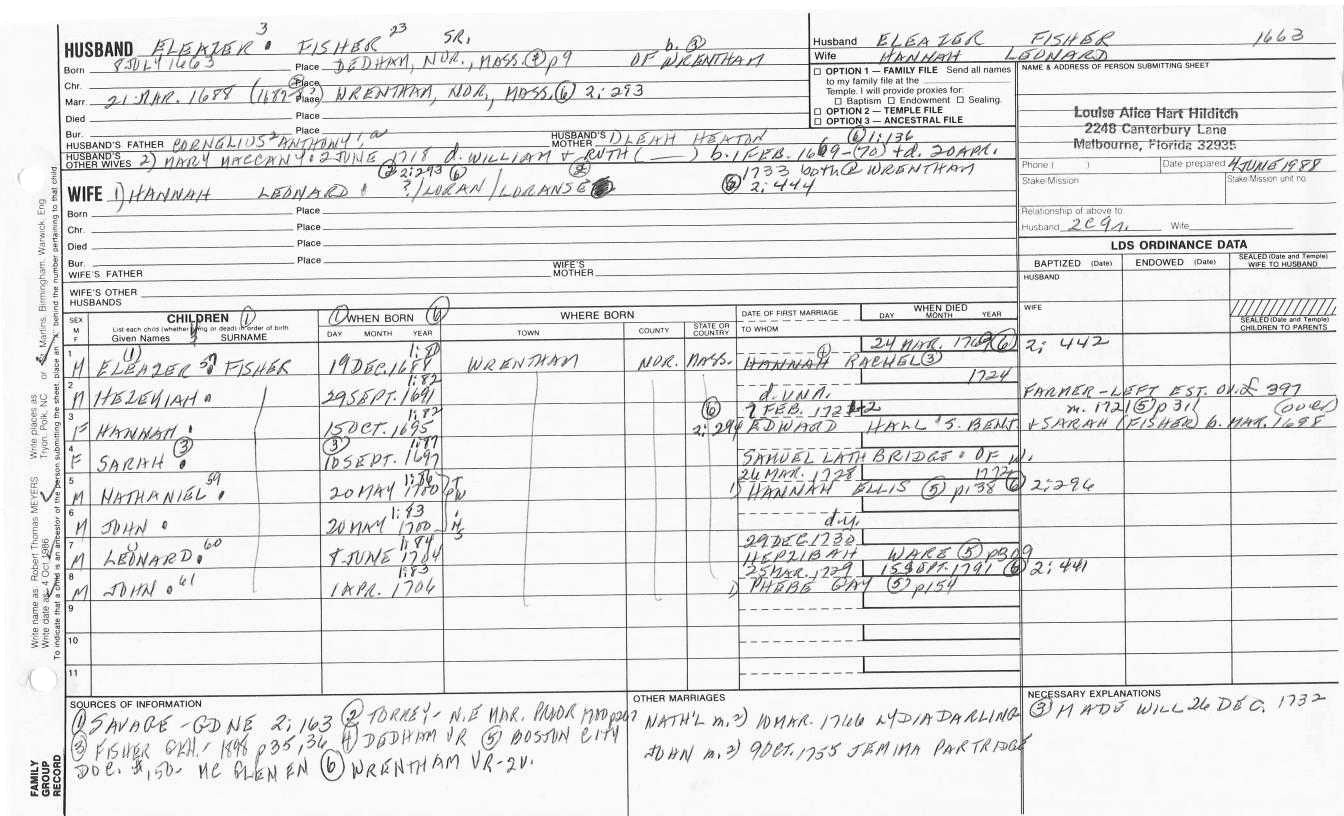 HUSBAND ELEAZER 3 FISHER 23 SR. b. ③
Born 8 JULY 1663 Place DEDHAM, NOR., MASS. ② p9 OF WRENTHAM
Chr. Place
Marr. 21 MAR. 1688 Place WRENTHAM, NOR., MASS. ⑥ 2:293
Died Place
Bur. Place
HUSBAND'S FATHER CORNELIUS 2 ANTHONY 1 HUSBAND'S MOTHER LEAH HEATON
⑥ 1:136
HUSBAND'S OTHER WIVES 2) MARY MACCANY 2 JUNE 1718 d. WILLIAM + RUTH ( ) b. 1 FEB. 1669-(70) + d. 20 APR.
2:293 ⑥ 1733 both @ WRENTHAM
WIFE 1) HANNAH LEONARD ?/LORAN/LORANSE ⑥ 2:444
Born Place
Chr. Place
Died Place
Bur. Place
WIFE'S FATHER WIFE'S MOTHER
WIFE'S OTHER HUSBANDS
Husband ELEAZER FISHER 1663
Wife HANNAH LEONARD
☐ OPTION 1 — FAMILY FILE Send all names
to my family file at the
Temple. I will provide proxies for:
☐ Baptism ☐ Endowment ☐ Sealing.
☐ OPTION 2 — TEMPLE FILE
☐ OPTION 3 — ANCESTRAL FILE
NAME & ADDRESS OF PERSON SUBMITTING SHEET
Louise Alice Hart Hilditch
2248 Canterbury Lane
Melbourne, Florida 32935
Phone ( ) Date prepared 4 JUNE 1988
Stake/Mission Stake/Mission unit no.
Relationship of above to
Husband 2C9r. Wife
LDS ORDINANCE DATA
BAPTIZED (Date) ENDOWED (Date) SEALED (Date and Temple) WIFE TO HUSBAND
HUSBAND
WIFE
SEALED (Date and Temple) CHILDREN TO PARENTS
SEX M F
CHILDREN ①
List each child (whether living or dead) in order of birth
Given Names SURNAME
① WHEN BORN ⑥
DAY MONTH YEAR
WHERE BORN
TOWN COUNTY STATE OR COUNTRY
DATE OF FIRST MARRIAGE
TO WHOM
WHEN DIED
DAY MONTH YEAR
1 M ELEAZER 57 FISHER 19 DEC. 1688 1:80 WRENTHAM NOR. MASS. HANNAH RACHEL ③ 24 MAR. 1769 ⑥ 2:442
2 M HEZEKIAH 29 SEPT. 1691 1:82 d. UNM. 1724 FARMER-LEFT EST. OV. £ 397
3 F HANNAH 15 OCT. 1695 1:82 ⑥ 2:294 7 FEB. 1721+2 EDWARD HALL S. BENJ. + SARAH (FISHER) b. MAR. 1698
m. 1721 ⑤ p311 (over)
4 F SARAH ③ ③ 10 SEPT. 1697 1:87 SAMUEL LATHBRIDGE OF W.
5 M NATHANIEL 59 20 MAY 1700 1:86 TWINS 26 MAR. 1728 1) HANNAH ELLIS ⑤ p138 1772 ⑥ 2:296
6 M JOHN 20 MAY 1700 1:83 d.y.
7 M LEONARD 60 8 JUNE 1704 1:84 29 DEC. 1730 HEPZIBAH WARE ⑤ p309
8 M JOHN 61 1 APR. 1706 1:83 25 MAR. 1729 1) PHEBE GAY ⑤ p154 15 SEPT. 1791 ⑥ 2:441
9
10
11
SOURCES OF INFORMATION
① SAVAGE-GDNE 2:163 ② TORREY-N.E MAR. PRIOR 1700 p267
③ FISHER GEN.-1898 p35,36 ④ DEDHAM VR ⑤ BOSTON CITY
DOC. #150- MCGLENEN ⑥ WRENTHAM VR-2v.
OTHER MARRIAGES
NATH'L m. 2) 10 MAR. 1766 LYDIA DARLING
JOHN m. 2) 9 OCT. 1755 JEMIMA PARTRIDGE
NECESSARY EXPLANATIONS
③ MADE WILL 26 DEC. 1732
FAMILY GROUP RECORD
Write name as: Robert Thomas MEYERS Write places as: Tryon, Polk, NC or St. Martins, Birmingham, Warwick, Eng
Write date as: 4 Oct 1986
To indicate that a child is an ancestor of the person submitting the sheet, place an "X" behind the number pertaining to that child